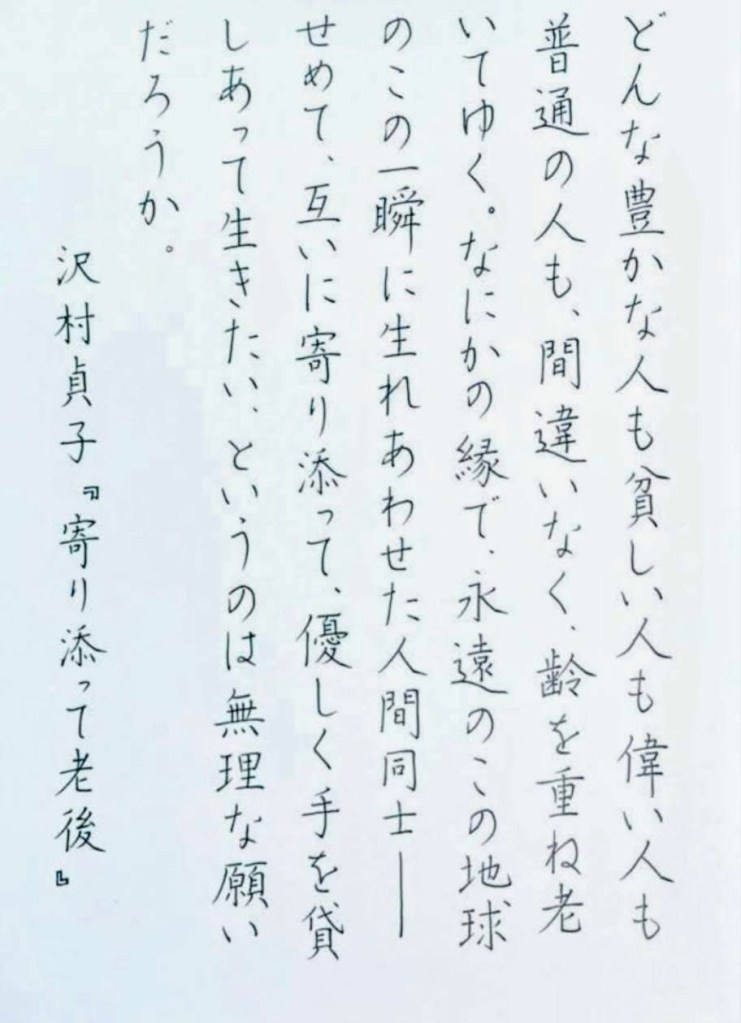 どんな豊かな人も貧しい人も偉い人も
普通の人も、間違いなく、齢を重ね老
いてゆく。なにかの縁で、永遠のこの地球
のこの一瞬に生れあわせた人間同士――
せめて、互いに寄り添って、優しく手を貸
しあって生きたい、というのは無理な願い
だろうか。
沢村貞子『寄り添って老後』